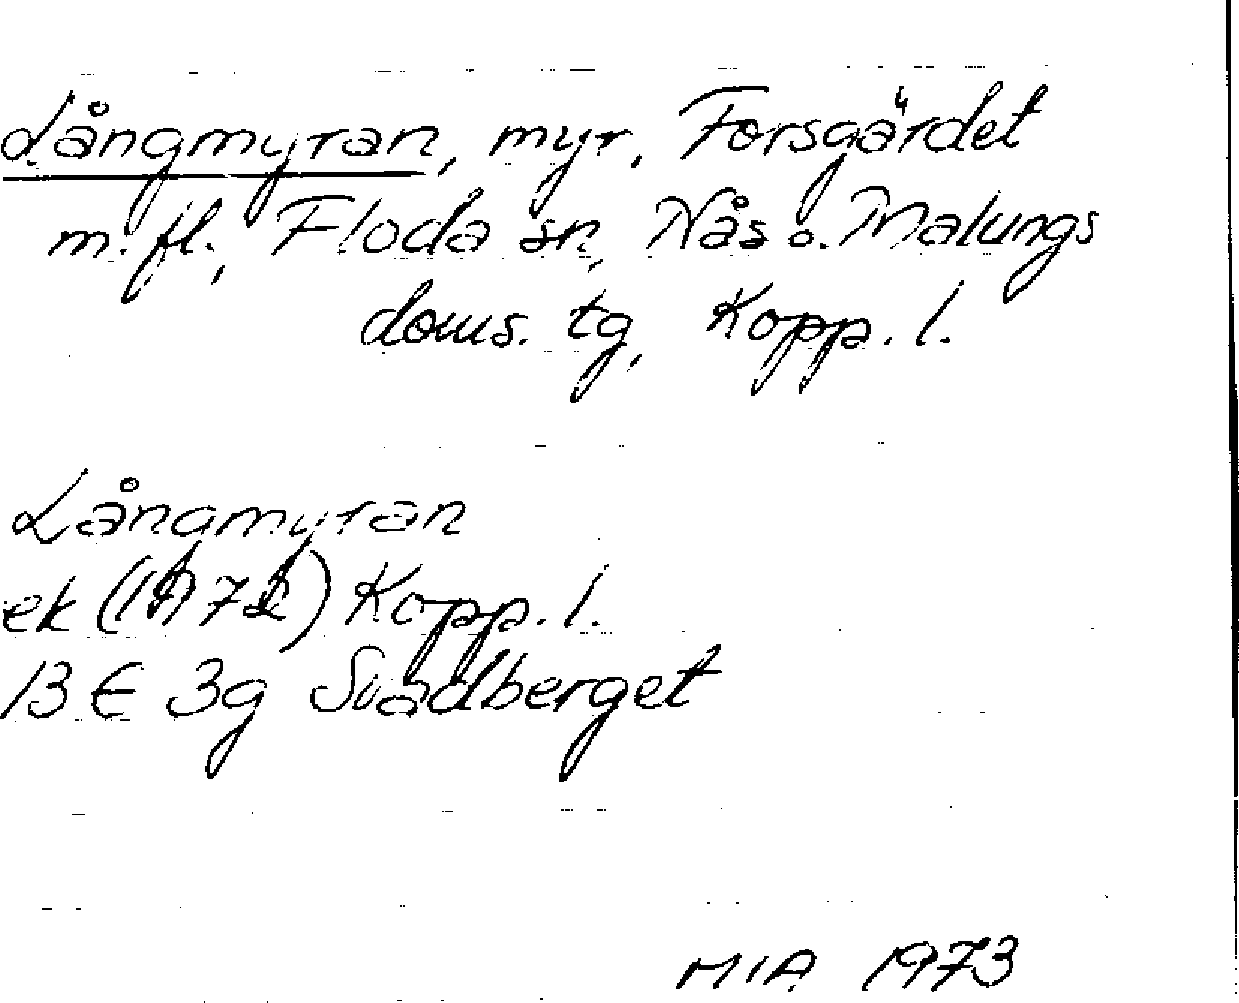 Långmyran, myr, Forsgärdet
m. fl., Floda sn, Nås o. Malungs
doms. tg, Kopp. l.
Långmyran
ek (1972) Kopp. l.
13 E 3g Svadberget
MIA 1973